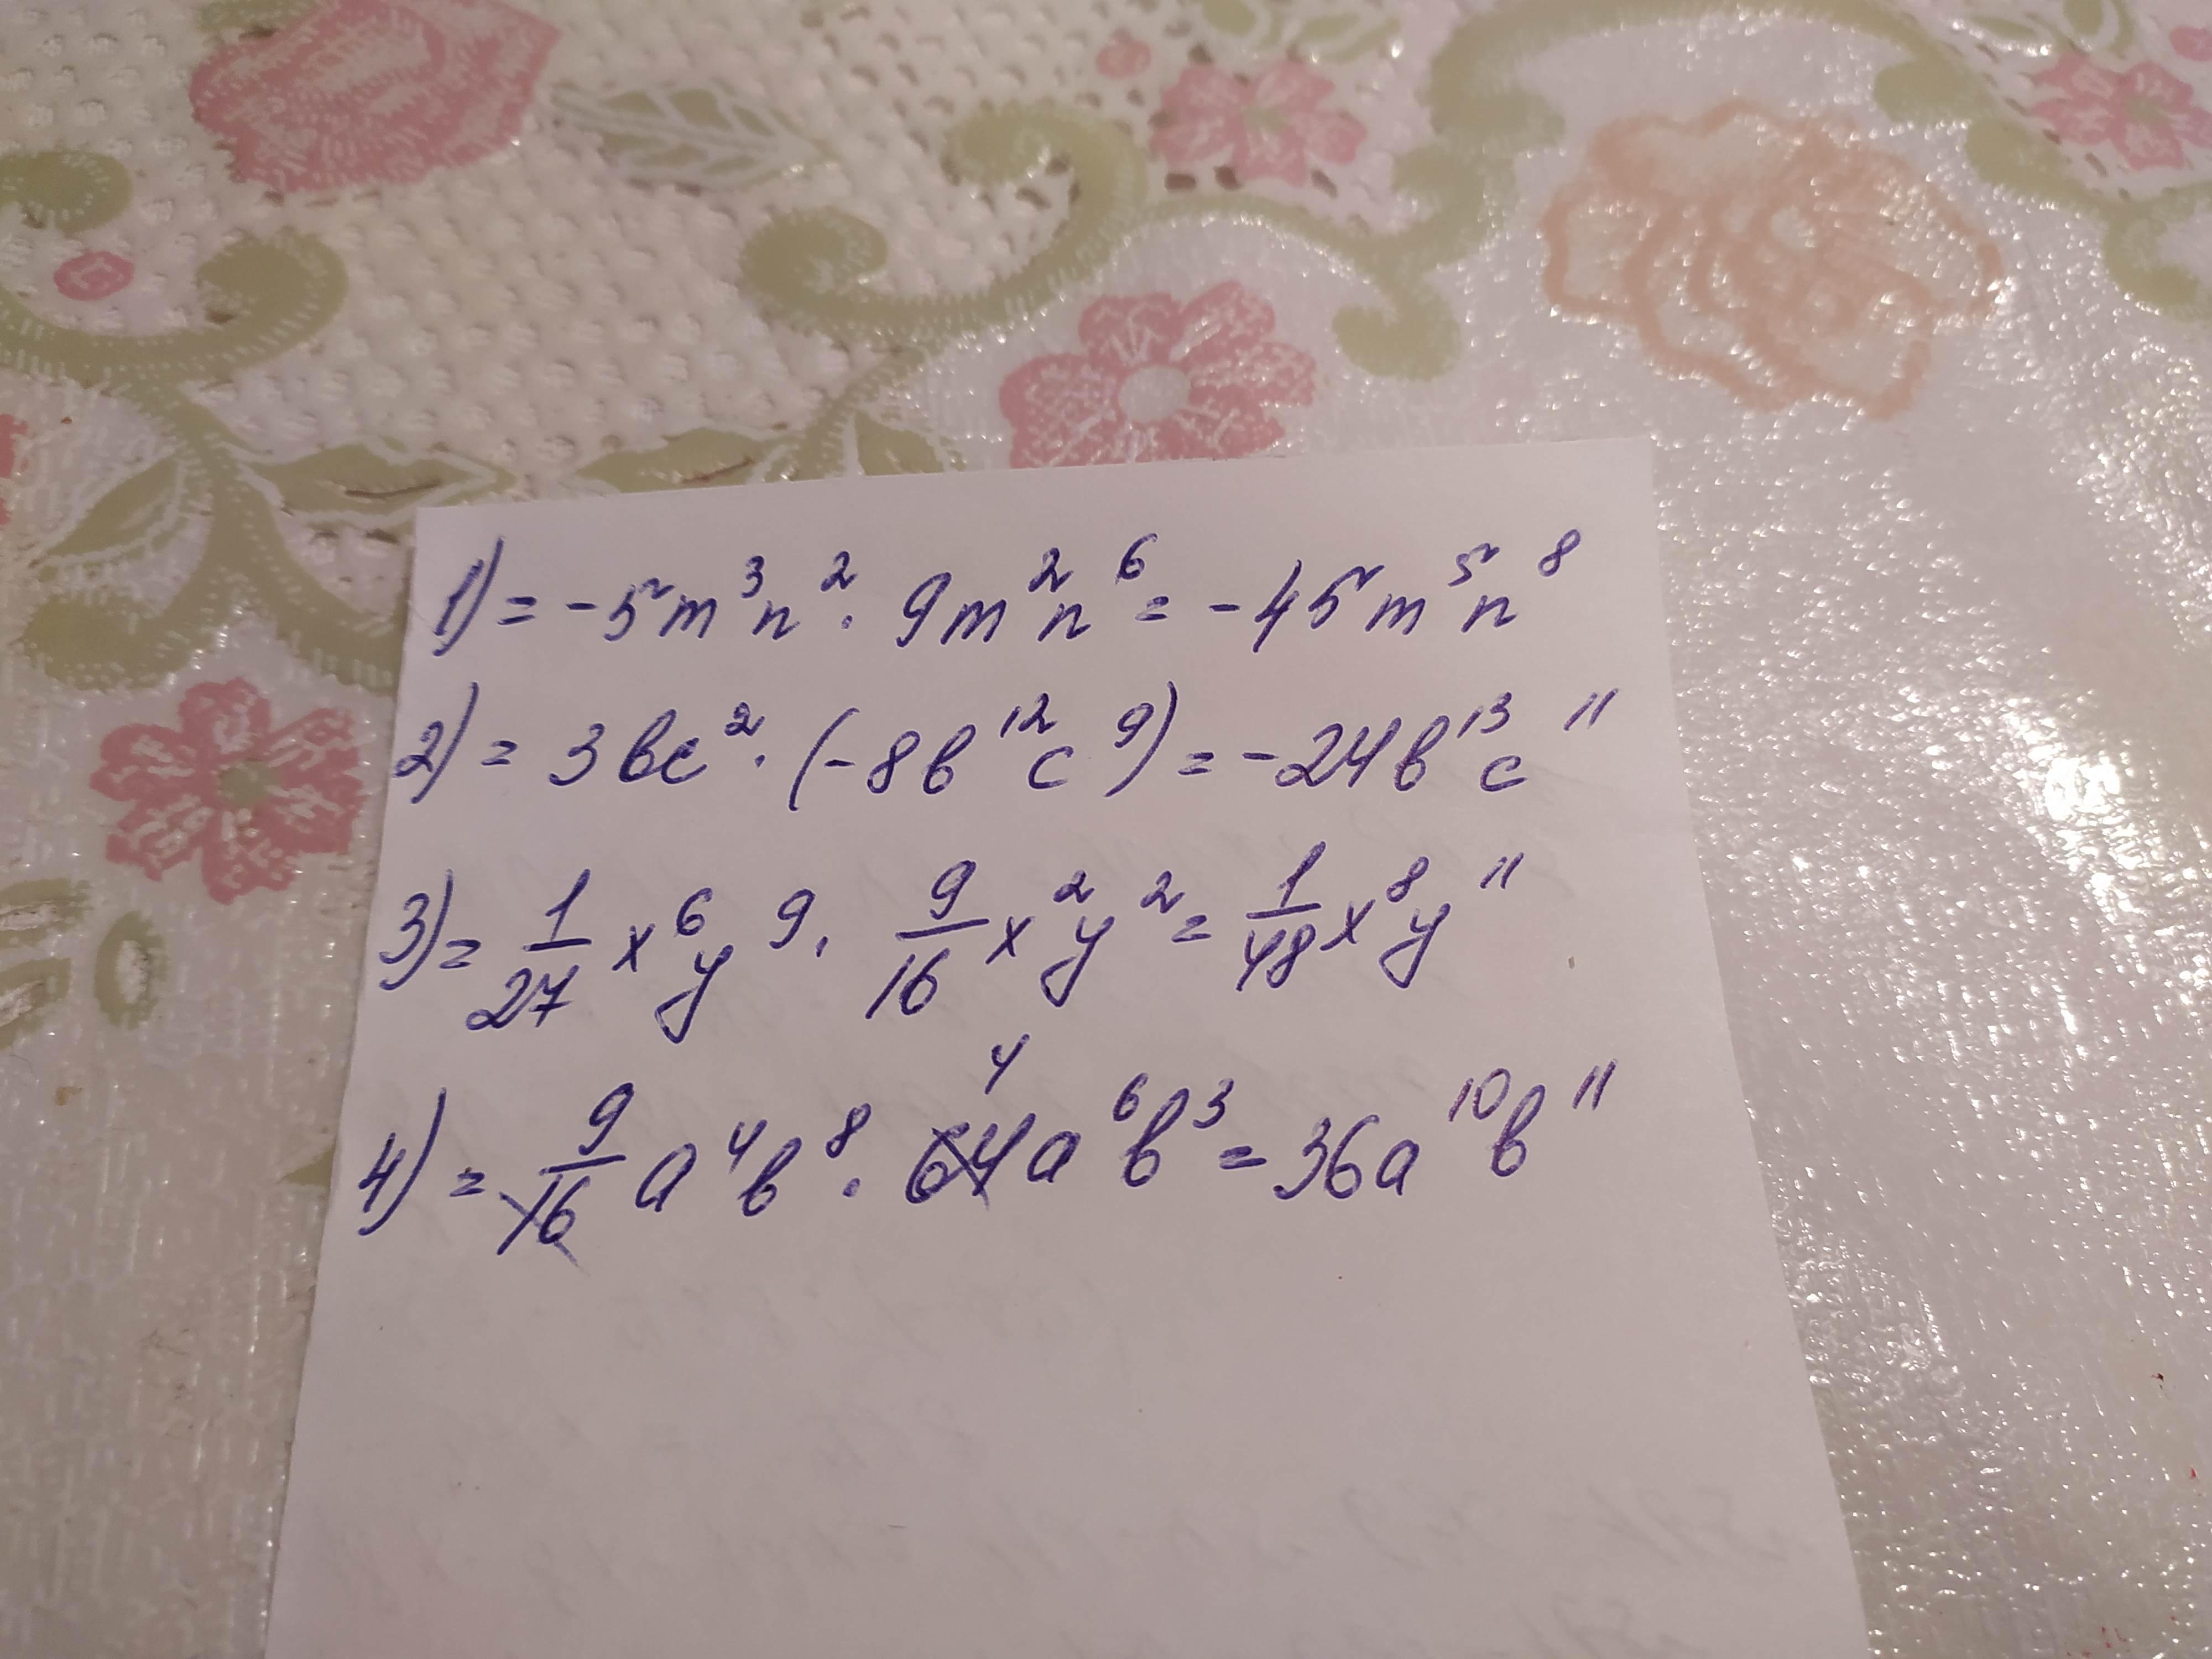 1) = -5m³n² · 9m²n⁶ = -45m⁵n⁸
2) = 3bc² · (-8b¹²c⁹) = -24b¹³c¹¹
3) = 1/27 x⁶y⁹ · 9/16 x²y² = 1/48 x⁸y¹¹
4
4) = 9/16 a⁴b⁸ · 64a⁶b³ = 36a¹⁰b¹¹